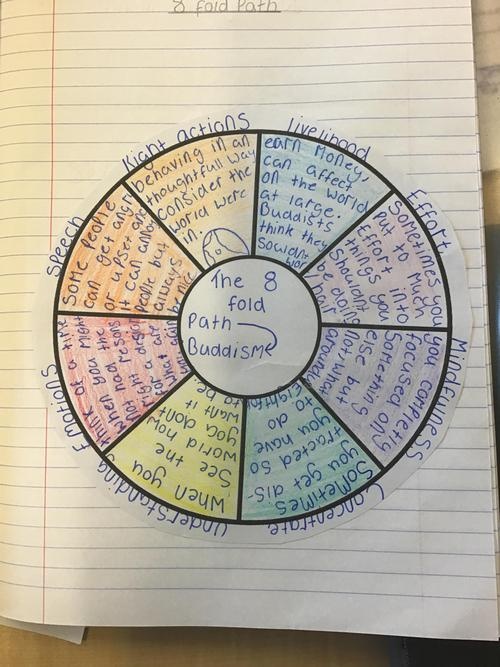 8 fold Path
Right actions
behaving in an
thoughtfull way
consider the
world were
in
livelihood
earn money
can affect
on the world
at large.
Buddists
think they
Effort
Sometimes you
put to much
Effort into
things you
be doing
hard
Mindfulness
you completly
focused on
Something
else but
not what
around
Concentrate
Sometimes
you get dis-
tracted so
you have
to do
Understanding
When you
See the
world how
you dont
want it
to be
Emotions
think of a time
when you might
had
Speech
Some people
can get angry
or upset and
it can annoy
people but
always
be nice
The 8
fold
Path
Buddism